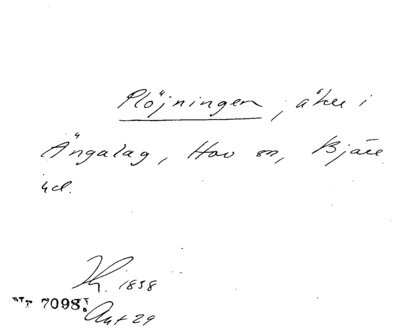 Plöjningen, åker i
Ängalag, Hov sn, Bjäre
hd.
Th. 1838
Nr 7098.
Akt 29